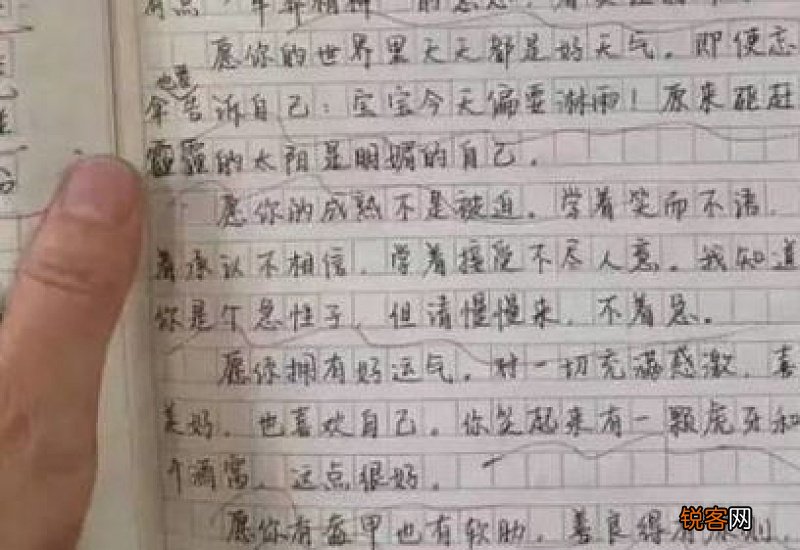 愿你的世界里天天都是好天气。即便忘
也要
伞告诉自己：宝宝今天偏要淋雨！原来驱赶
雾霾的太阳是明媚的自己。
愿你的成熟不是被迫。学着笑而不语，
着承认不相信，学着接受不尽人意。我知道
你是个急性子，但请慢慢来，不着急。
愿你拥有好运气，对一切充满感激，喜
美好，也喜欢自己。你笑起来有一颗虎牙和
个酒窝，这点很好。
愿你有盔甲也有软肋，善良得有原则，
锐客网